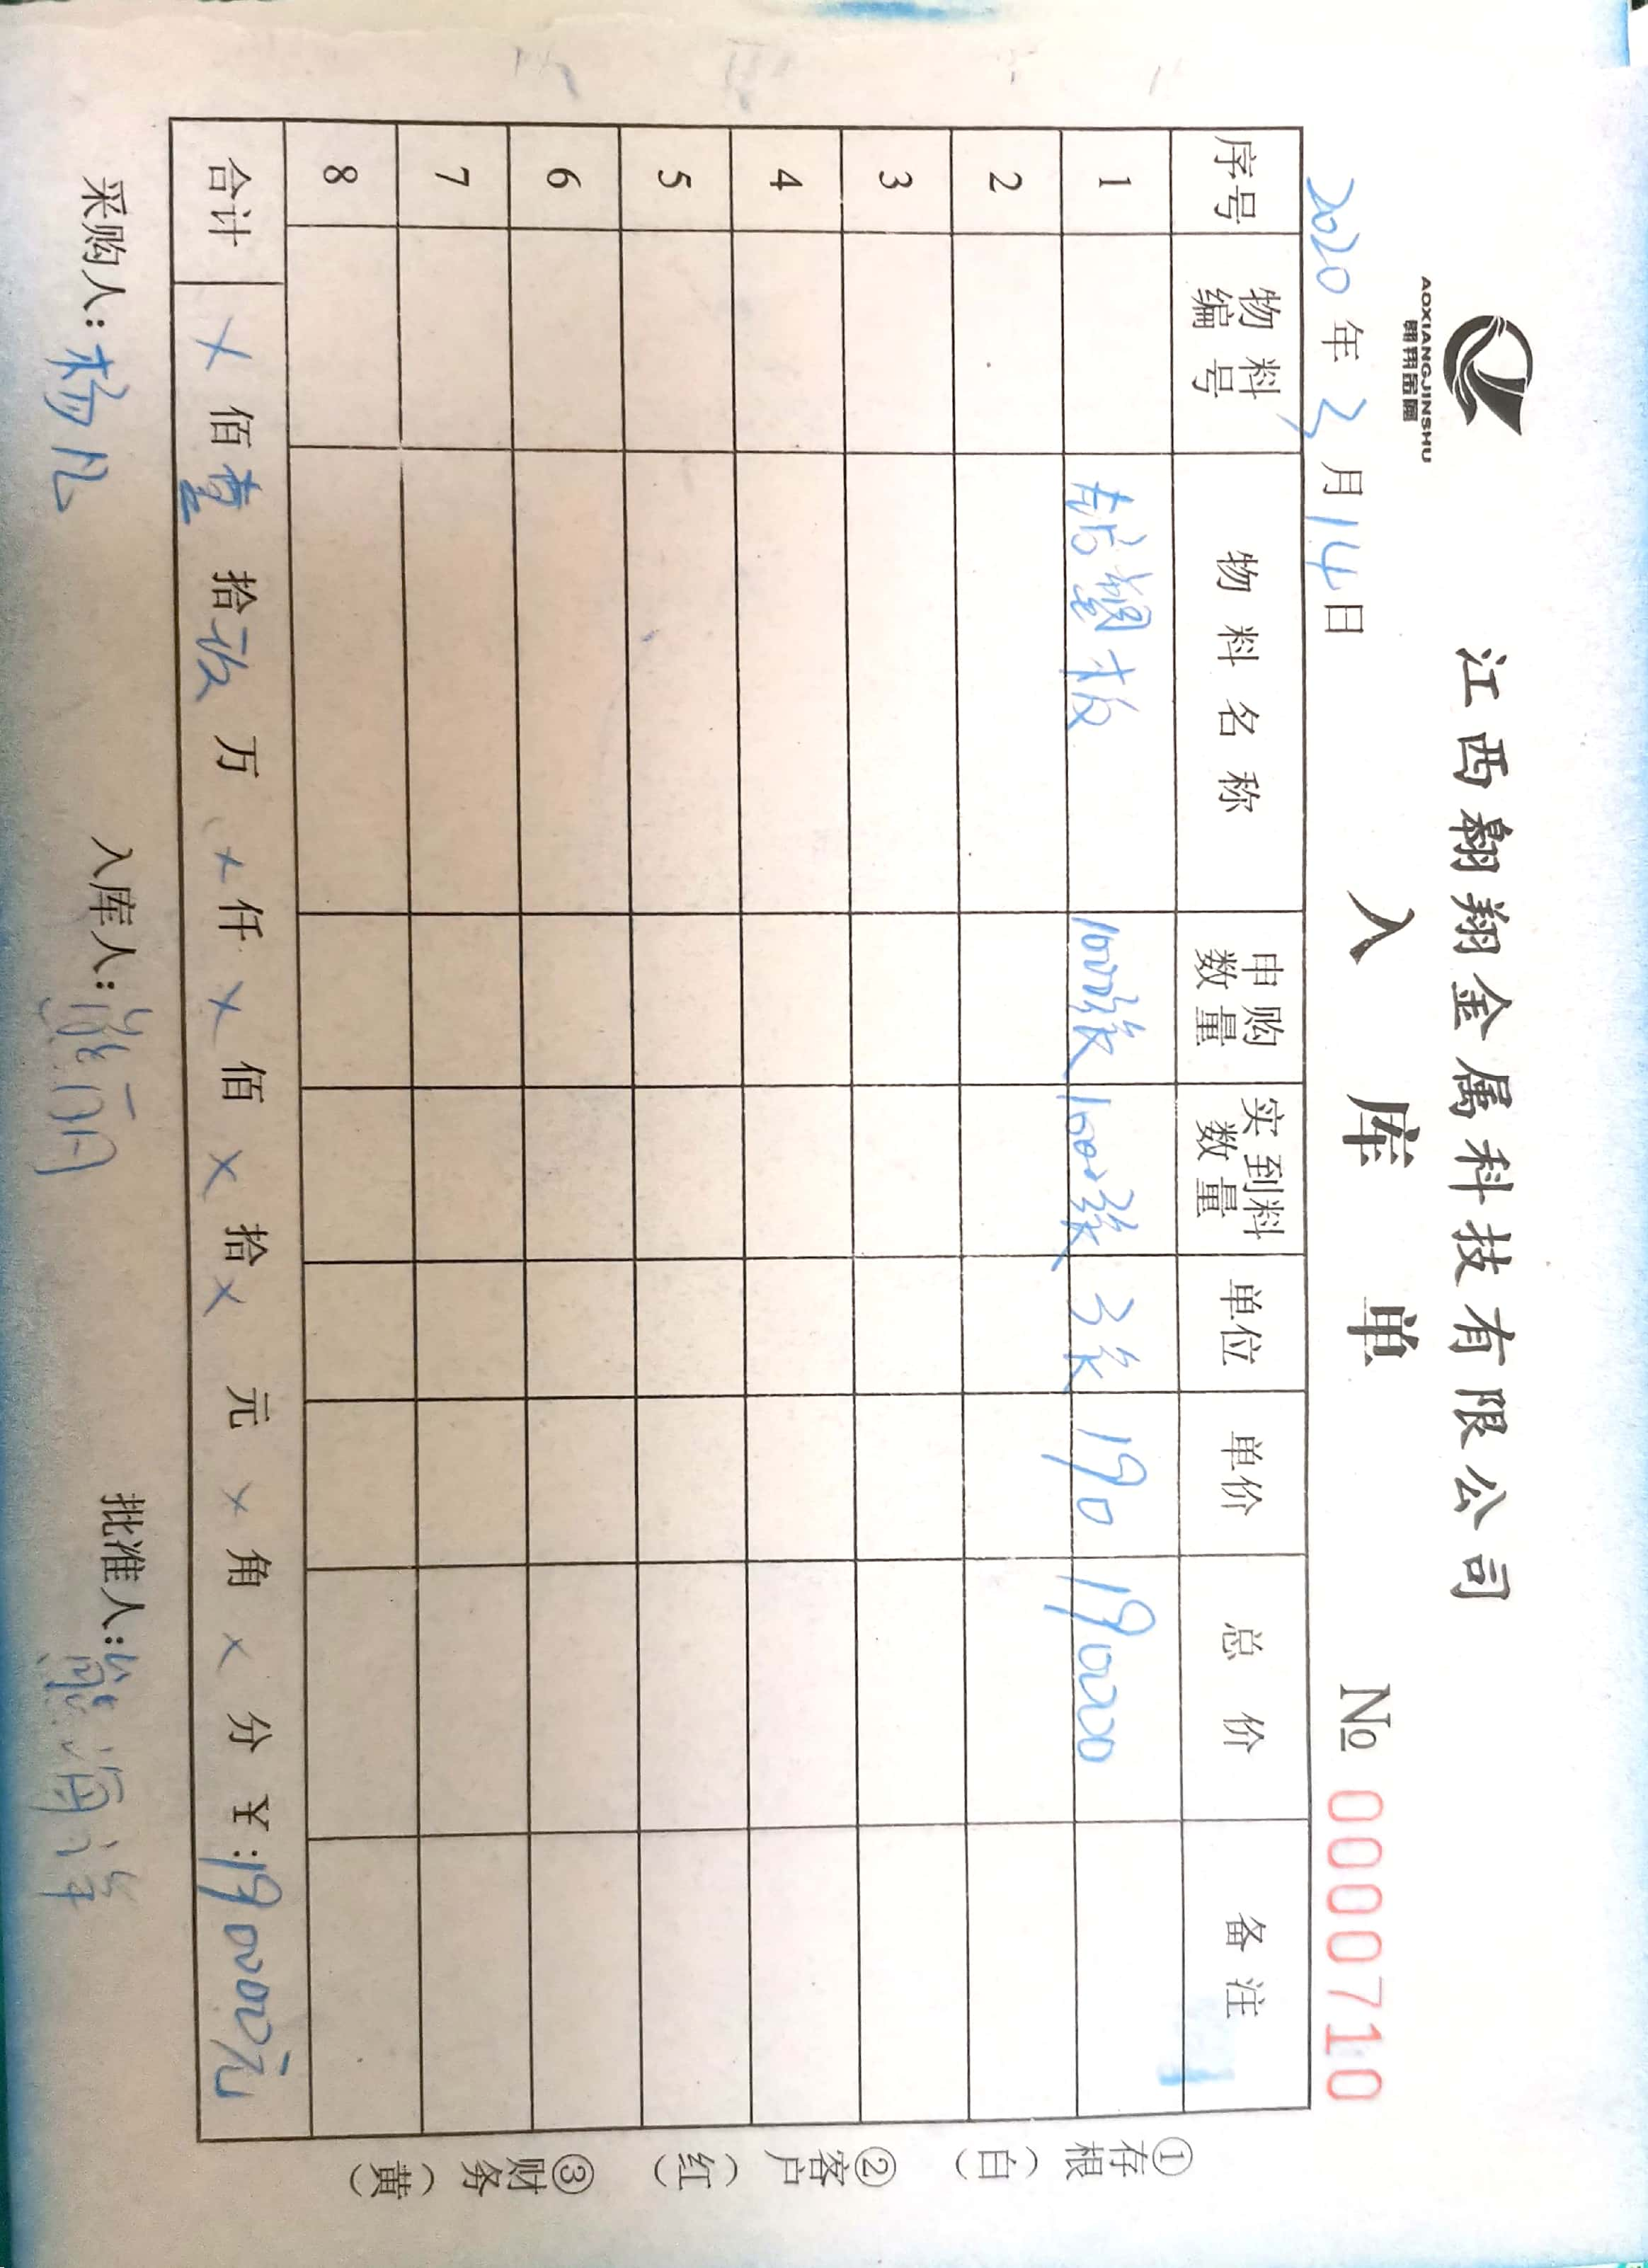 翱翔金属
AOXIANGJINSHU
江西翱翔金属科技有限公司
入库单
№ 0000710
2020年2月14日
序号 物料编号 物料名称 申购数量 实到料数量 单位 单价 总价 备注
1 板 1000张 1000张 张 190 190000
2
3
4
5
6
7
8
合计 × 佰 壹 拾 玖 万 × 仟 × 佰 × 拾 × 元 × 角 × 分 ¥:190000元
采购人:杨凡 入库人:熊丽 批准人:熊海洋
①存根(白) ②客户(红) ③财务(黄)